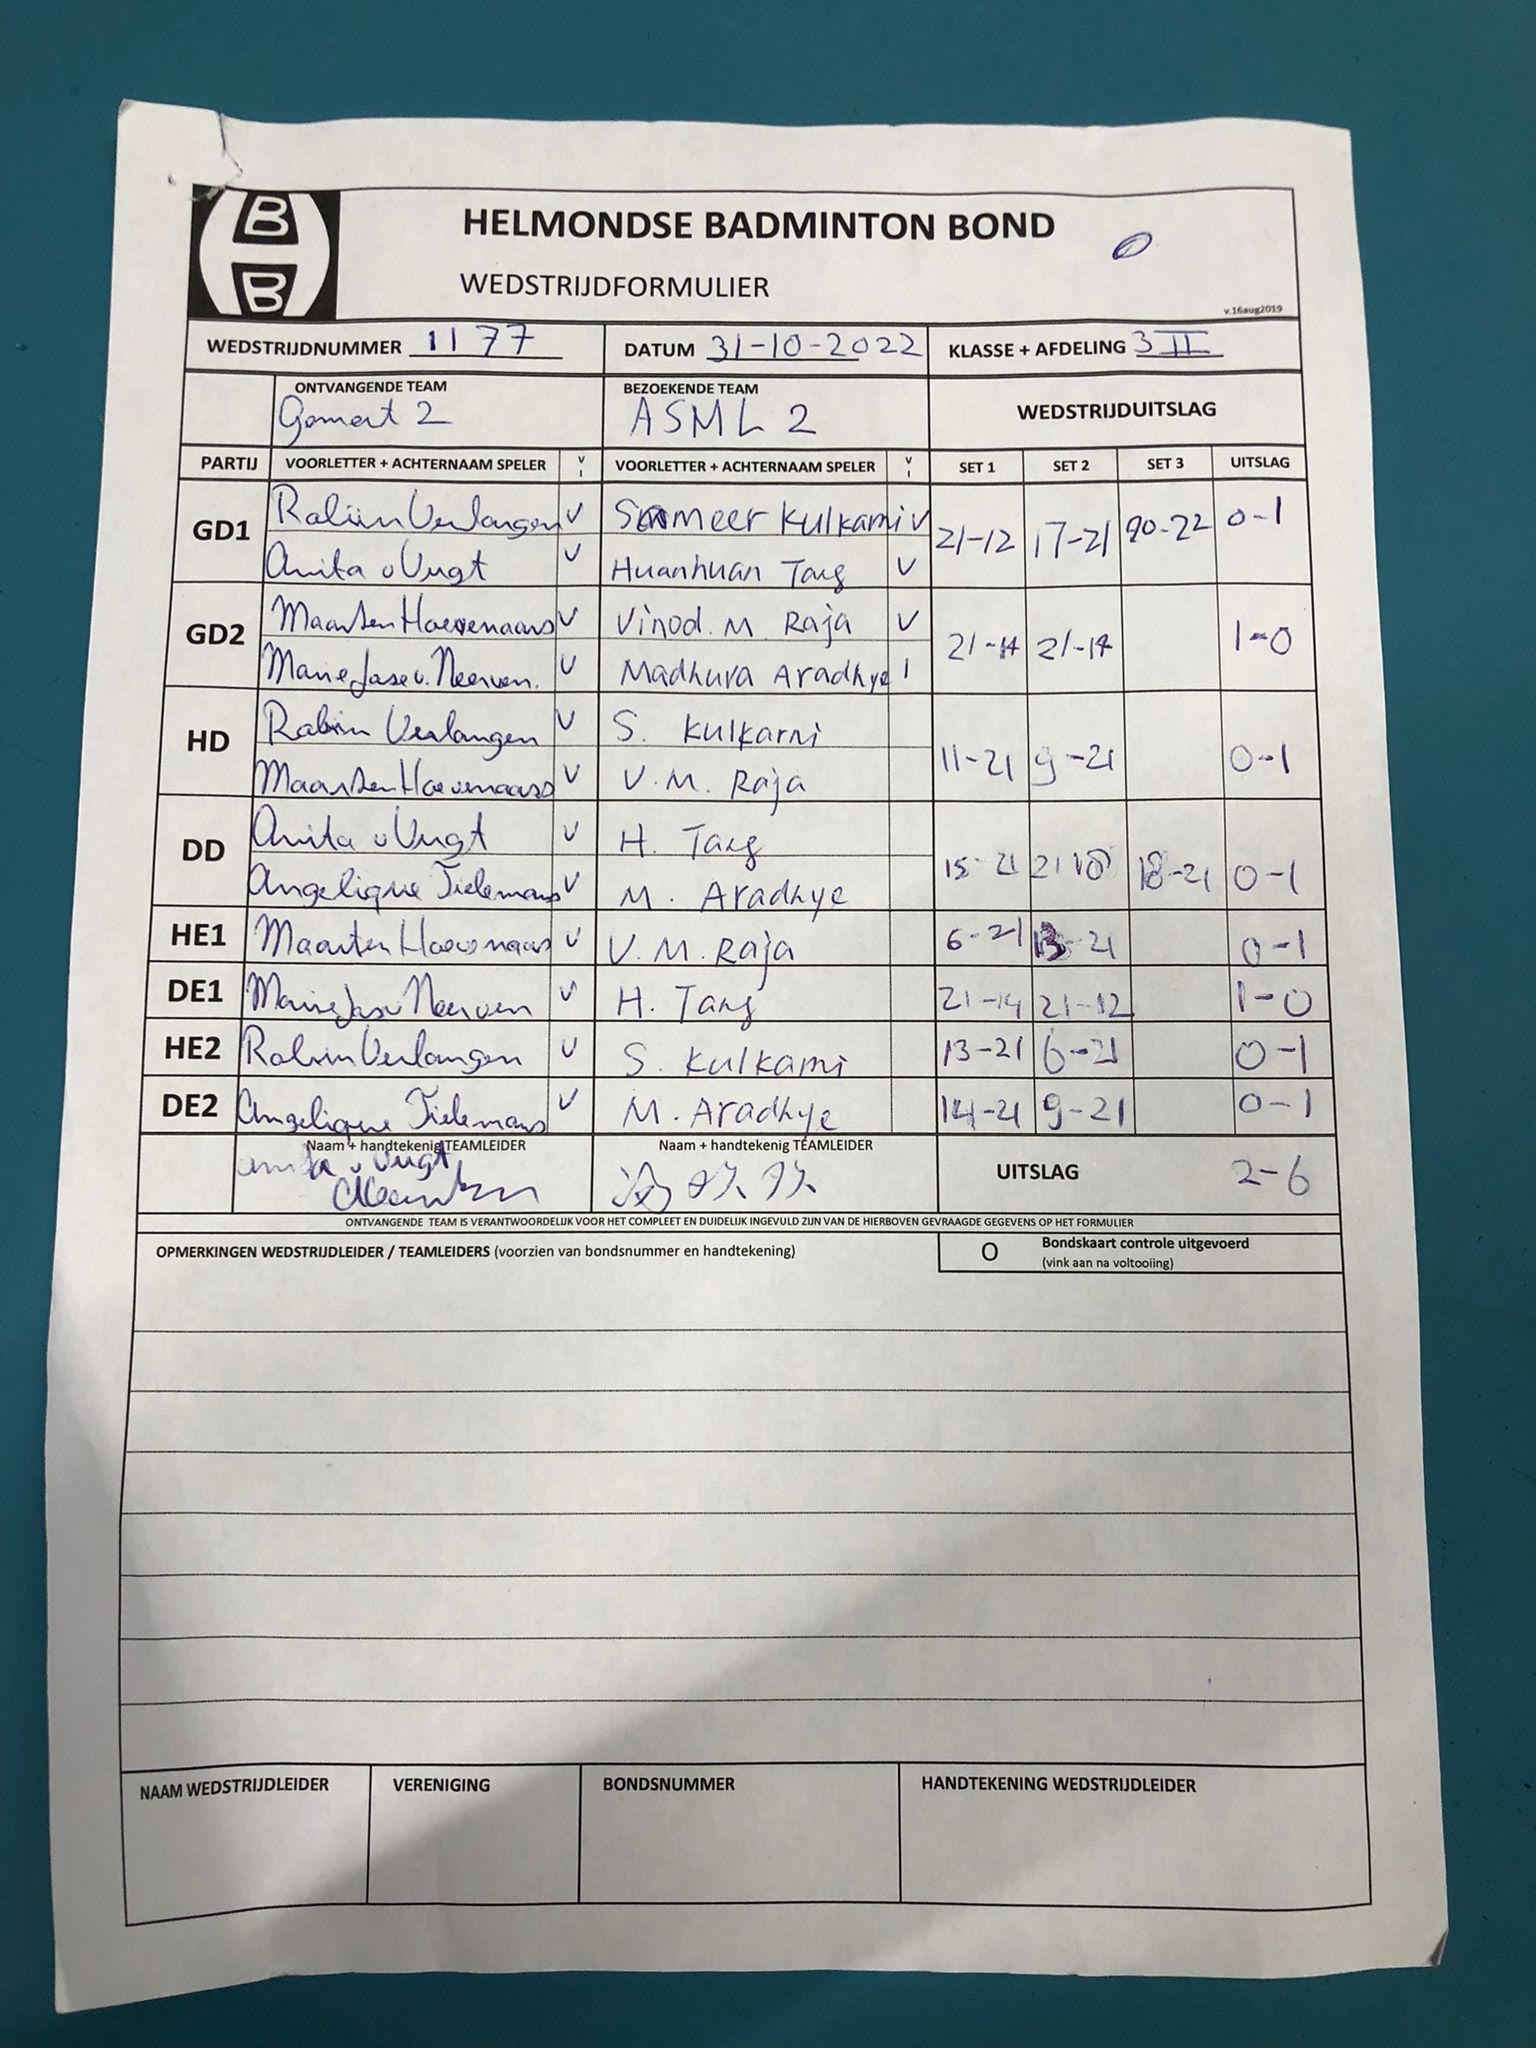 B
B
HELMONDSE BADMINTON BOND
WEDSTRIJDFORMULIER
v.16aug2019
WEDSTRIJDNUMMER 1177 DATUM 31-10-2022 KLASSE + AFDELING 3 II
ONTVANGENDE TEAM BEZOEKENDE TEAM WEDSTRIJDUITSLAG
Gemert 2 ASML 2
PARTIJ VOORLETTER + ACHTERNAAM SPELER V I VOORLETTER + ACHTERNAAM SPELER V I SET 1 SET 2 SET 3 UITSLAG
GD1 Robin Verlangen V Sameer Kulkarni V 21-12 17-21 20-22 0-1
Anita v Vugt V Huanhuan Tang V
GD2 Maarten Hoevenaars V Vinod. M. Raja V 21-14 21-14 1-0
Marie Jose v. Neerven. V Madhura Aradhye I
HD Robin Verlangen V S. Kulkarni 11-21 9-21 0-1
Maarten Hoevenaars V V. M. Raja
DD Anita v Vugt V H. Tang 15-21 21-18 18-21 0-1
Angelique Tielemans V M. Aradhye
HE1 Maarten Hoevenaars V V. M. Raja 6-21 13-21 0-1
DE1 Marie Jose v Neerven V H. Tang 21-14 21-12 1-0
HE2 Robin Verlangen V S. Kulkarni 13-21 6-21 0-1
DE2 Angelique Tielemans V M. Aradhye 14-21 9-21 0-1
Naam + handtekenig TEAMLEIDER Naam + handtekenig TEAMLEIDER UITSLAG 2-6
Anita v Vugt
ONTVANGENDE TEAM IS VERANTWOORDELIJK VOOR HET COMPLEET EN DUIDELIJK INGEVULD ZIJN VAN DE HIERBOVEN GEVRAAGDE GEGEVENS OP HET FORMULIER
OPMERKINGEN WEDSTRIJDLEIDER / TEAMLEIDERS (voorzien van bondsnummer en handtekening) O Bondskaart controle uitgevoerd
(vink aan na voltooiing)
NAAM WEDSTRIJDLEIDER VERENIGING BONDSNUMMER HANDTEKENING WEDSTRIJDLEIDER